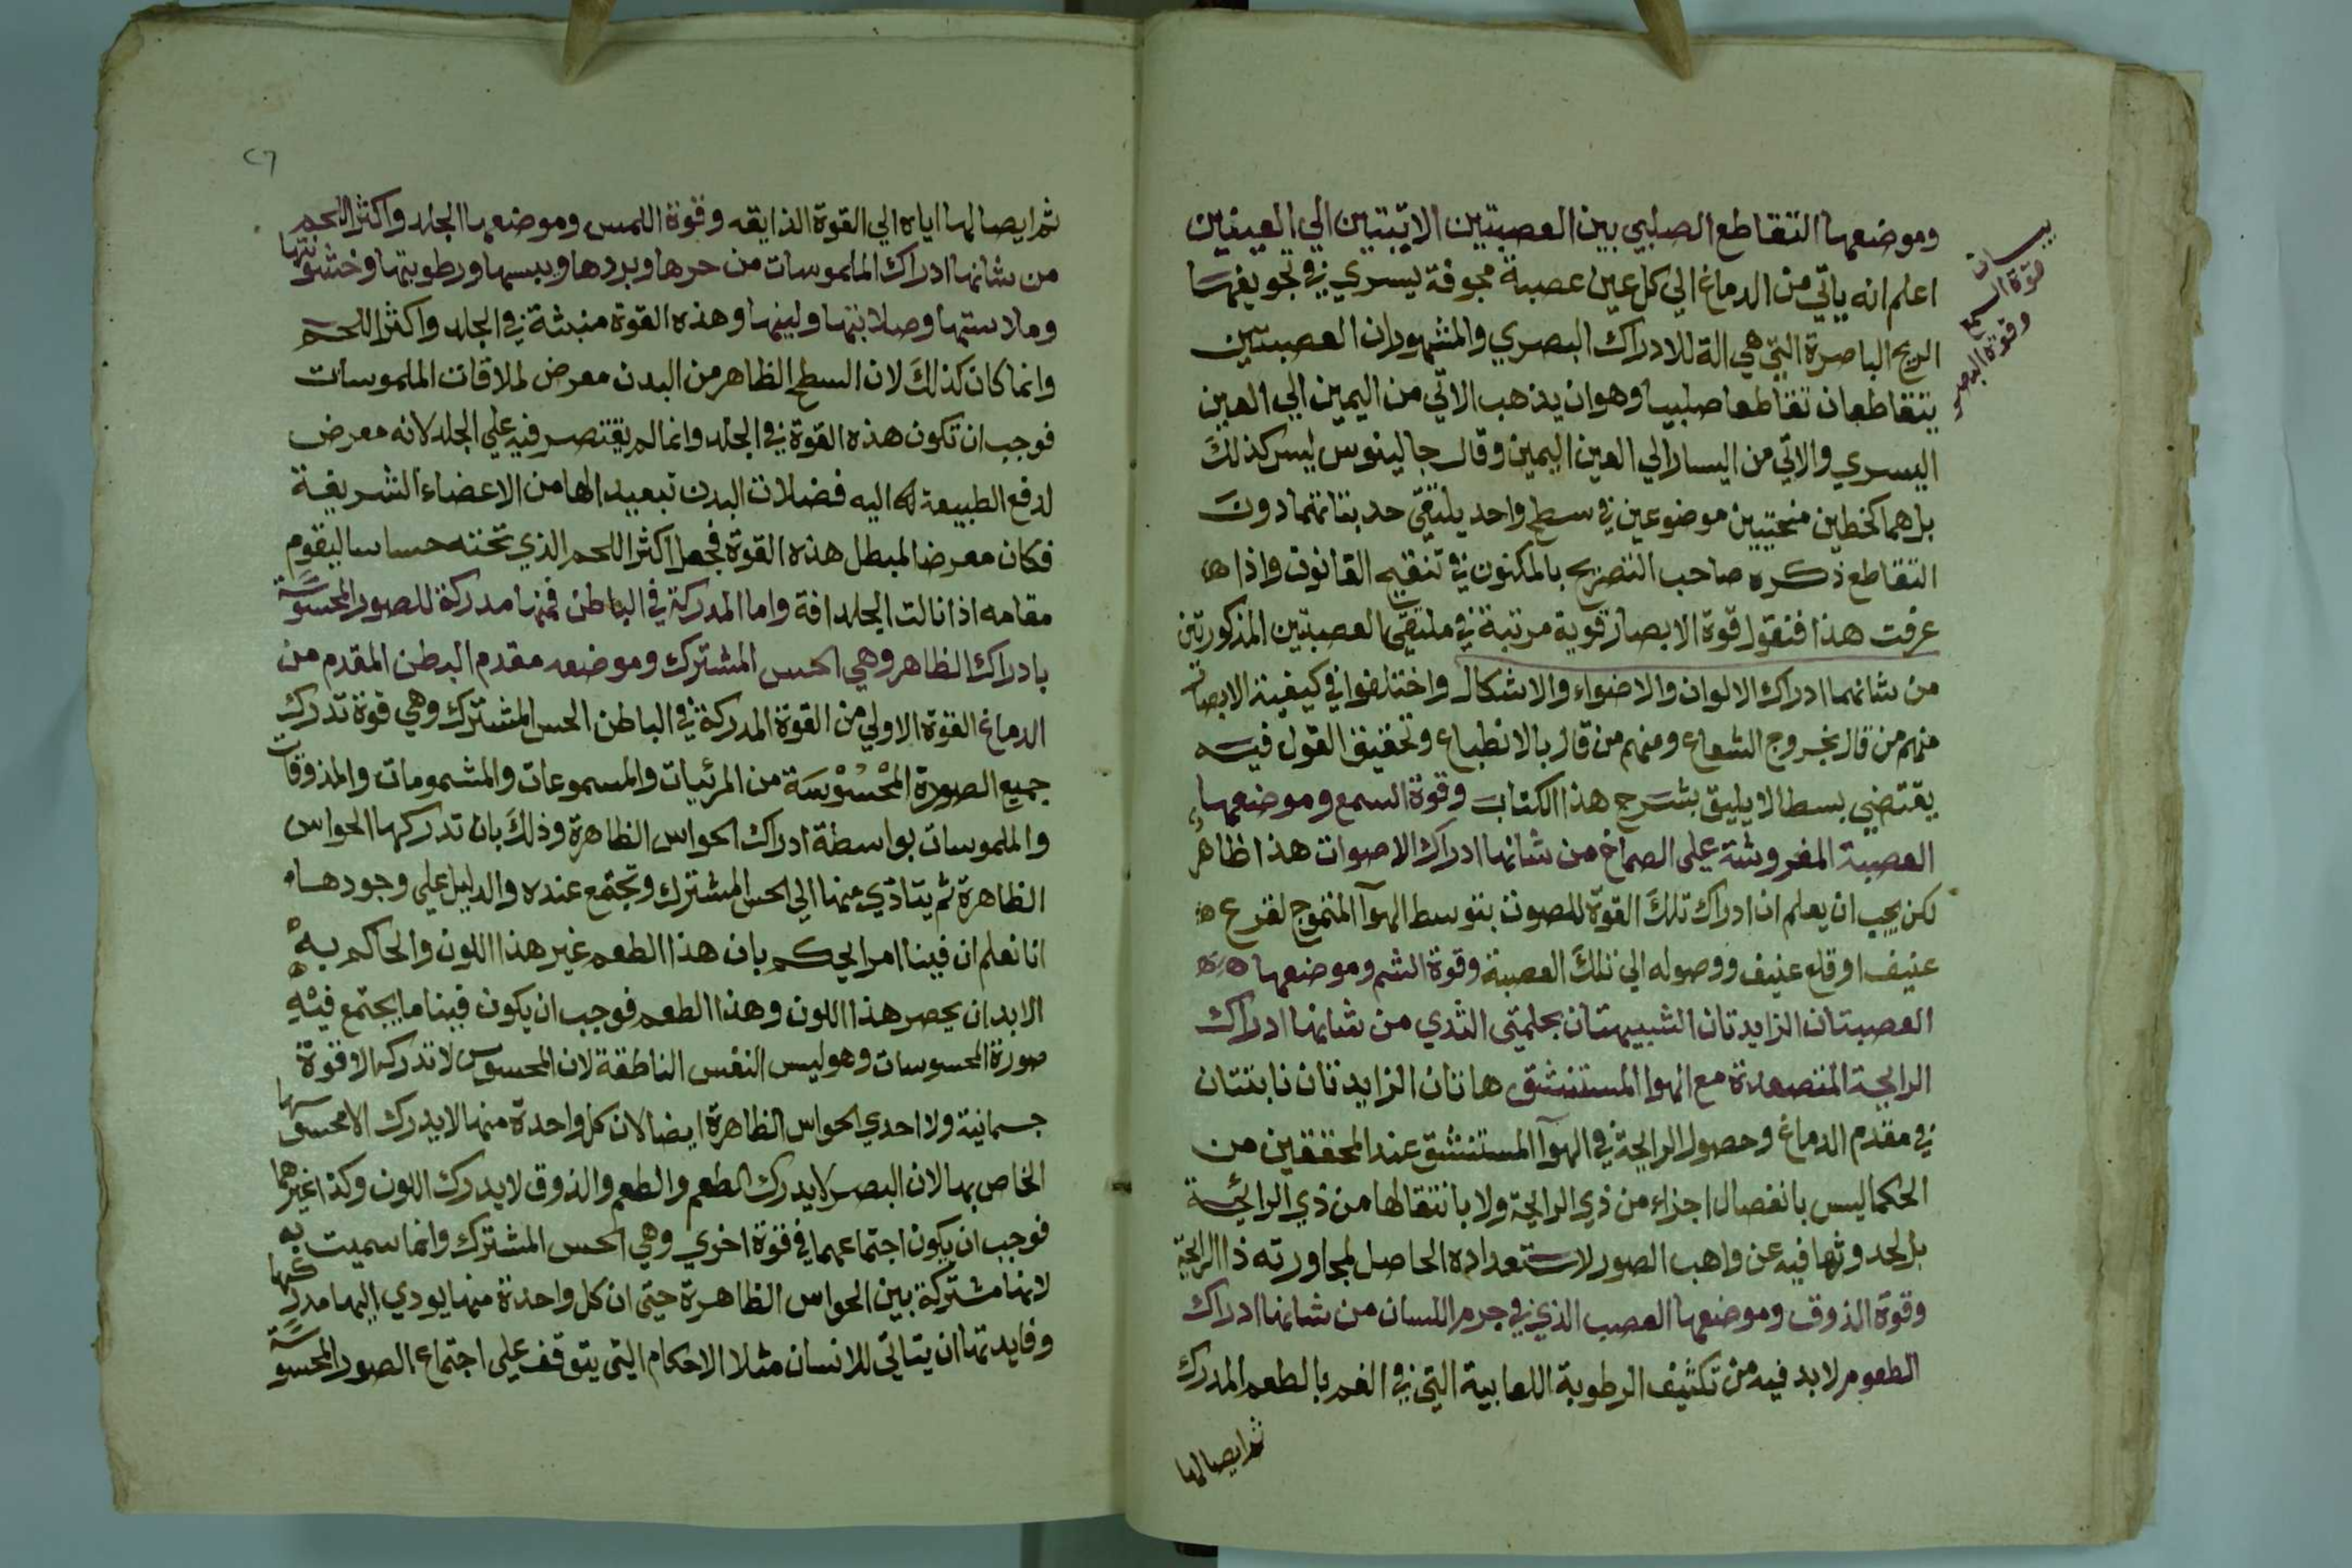 وموضعها التقاطع الصلبي بين العصبتين الاتيتين الي العينين
اعلم انه ياتي من الدماغ الي كل عين عصبة مجوفة يسري في تجويفهما
الريح الباصرة التي هي الة للادراك البصري والمشهور ان العصبتين
يتقاطعان تقاطعا صلبيا وهو ان يذهب الاتي من اليمين الي العين
اليسري والاتي من اليسار الي العين اليمين وقال جالينوس ليس كذلك
بل هما كخطين منحنيين موضوعين في سطح واحد يلتقي حدبتاتهما دون
التقاطع ذكره صاحب التصريح بالمكنون في تنقيح القانون واذا
عرفت هذا فنقول قوة الابصار قوية مرتبة في ملتقي العصبتين المذكورتين
من شانهما ادراك الالوان والاضواء والاشكال واختلفوا في كيفية الابصار
منهم من قال بخروج الشعاع ومنهم من قال بالانطباع وتحقيق القول فيه
يقتضي بسطا لا يليق بشرح هذا الكتاب وقوة السمع وموضعها
العصبة المفروشة علي الصماخ من شانها ادراك الاصوات هذا ظاهر
لكن يجب ان يعلم ان ادراك تلك القوة للصوت بتوسط الهوآ المتموج لقرع
عنيف او قلع عنيف ووصوله الي تلك العصبة وقوة الشم وموضعها
العصبتان الزايدتان الشبيهتان بحلمتي الثدي من شانها ادراك
الرايحة المتصعدة مع الهوا المستنشق هاتان الزايدتان نابتتان
في مقدم الدماغ وحصول الرايحة في الهوآ المستنشق عند المحققين من
الحكما ليس بانفصال اجزاء من ذي الرايحة ولا بانتقالها من ذي الرائحة
بل لحدوثها فيه عن واهب الصور لاستعداده الحاصل لمجاورته ذا الرايحة
وقوة الذوق وموضعها العصب الذي في جرم اللسان من شانها ادراك
الطعوم لا بد فيه من تكثيف الرطوبة اللعابية التي في الفم بالطعم المدرك
ثم ايصالها
بيان
قوة السمع
وقوة البصر
٢٦
ثم ايصالها اياه الي القوة الذايقه وقوة اللمس وموضعها الجلد واكثر اللحم
من شانها ادراك الملموسات من حرها وبردها ويبسها ورطوبتها وخشونتها
وملاستها وصلابتها ولينها وهذه القوة منبثة في الجلد واكثر اللحم
وانما كان كذلك لان السطح الظاهر من البدن معرض لملاقات الملموسات
فوجب ان تكون هذه القوة في الجلد وانما لم يقتصر فيه علي الجلد لانه معرض
لدفع الطبيعة اليه فضلات البدن تبعيدا لها من الاعضاء الشريفة
فكان معرضا لمبطل هذه القوة فجعل اكثر اللحم الذي تحته حساسا ليقوم
مقامه اذا نالت الجلد افة واما المدركة في الباطن فمنها مدركة للصور المحسوسة
بادراك الظاهر وهي الحس المشترك وموضعه مقدم البطن المقدم من
الدماغ القوة الاولي من القوة المدركة في الباطن الحس المشترك وهي قوة تدرك
جميع الصورة المحسوسة من المرئيات والمسموعات والمشمومات والمذوقات
والملموسات بواسطة ادراك الحواس الظاهرة وذلك بان تدركها الحواس
الظاهرة ثم يتادي منها الي الحس المشترك وتجتمع عنده والدليل علي وجودها
انا نعلم ان فينا امرا يحكم بان هذا الطعم غير هذا اللون والحاكم به
الابد ان يحصر هذا اللون وهذا الطعم فوجب ان يكون فينا ما يجتمع فيه
صورة المحسوسات وهو ليس النفس الناطقة لان المحسوس لا تدركه الا قوة
جسمانية ولا احدي الحواس الظاهرة ايضا لان كل واحدة منها لا يدرك الا محسوسها
الخاص بها لان البصر لا يدرك الطعم والطعم والذوق لا يدرك اللون وكذا غيرهما
فوجب ان يكون اجتماعهما في قوة اخري وهي الحس المشترك وانما سميت به
لانها مشتركة بين الحواس الظاهرة حتي ان كل واحدة منها يودي اليها مدركها
وفايدتها ان يتاتي للانسان مثلا الاحكام التي يتوقف علي اجتماع الصور المحسوسة